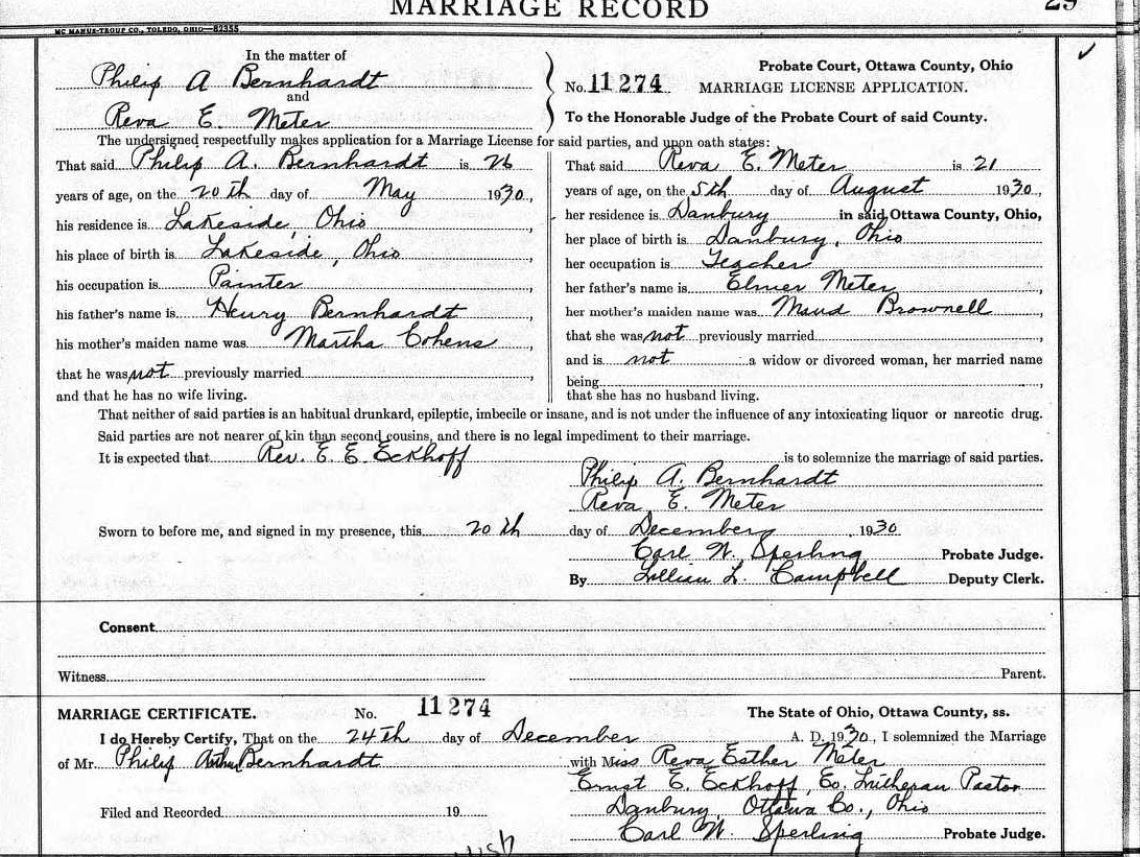 MARRIAGE RECORD 29
MC MANUS-TROUP CO., TOLEDO, OHIO—82355
In the matter of
Philip A Bernhardt
and
Reva E. Meter
No. 11274
Probate Court, Ottawa County, Ohio
MARRIAGE LICENSE APPLICATION.
To the Honorable Judge of the Probate Court of said County.
The undersigned respectfully makes application for a Marriage License for said parties, and upon oath states:
That said Philip A. Bernhardt is 26
years of age, on the 20th day of May 1930,
his residence is Lakeside, Ohio,
his place of birth is Lakeside, Ohio,
his occupation is Painter,
his father's name is Henry Bernhardt,
his mother's maiden name was Martha Cohens,
that he was not previously married,
and that he has no wife living.
That said Reva E. Meter is 21
years of age, on the 5th day of August 1930,
her residence is Danbury in said Ottawa County, Ohio,
her place of birth is Danbury, Ohio
her occupation is Teacher,
her father's name is Elmer Meter,
her mother's maiden name was Maud Brownell
that she was not previously married,
and is not a widow or divorced woman, her married name
being,
that she has no husband living.
That neither of said parties is an habitual drunkard, epileptic, imbecile or insane, and is not under the influence of any intoxicating liquor or narcotic drug.
Said parties are not nearer of kin than second cousins, and there is no legal impediment to their marriage.
It is expected that Rev. E. E. Eckhoff is to solemnize the marriage of said parties.
Philip A. Bernhardt
Reva E. Meter
Sworn to before me, and signed in my presence, this 20th day of December, 1930.
Carl W. Sperling Probate Judge.
By Lillian L. Campbell Deputy Clerk.
Consent
Witness Parent.
MARRIAGE CERTIFICATE. No. 11274 The State of Ohio, Ottawa County, ss.
I do Hereby Certify, That on the 24th day of December A. D. 1930, I solemnized the Marriage
of Mr. Philip Arthur Bernhardt with Miss Reva Esther Meter
Ernst E. Eckhoff, Ev. Lutheran Pastor
Danbury Ottawa Co., Ohio
Filed and Recorded 19
Carl W. Sperling Probate Judge.